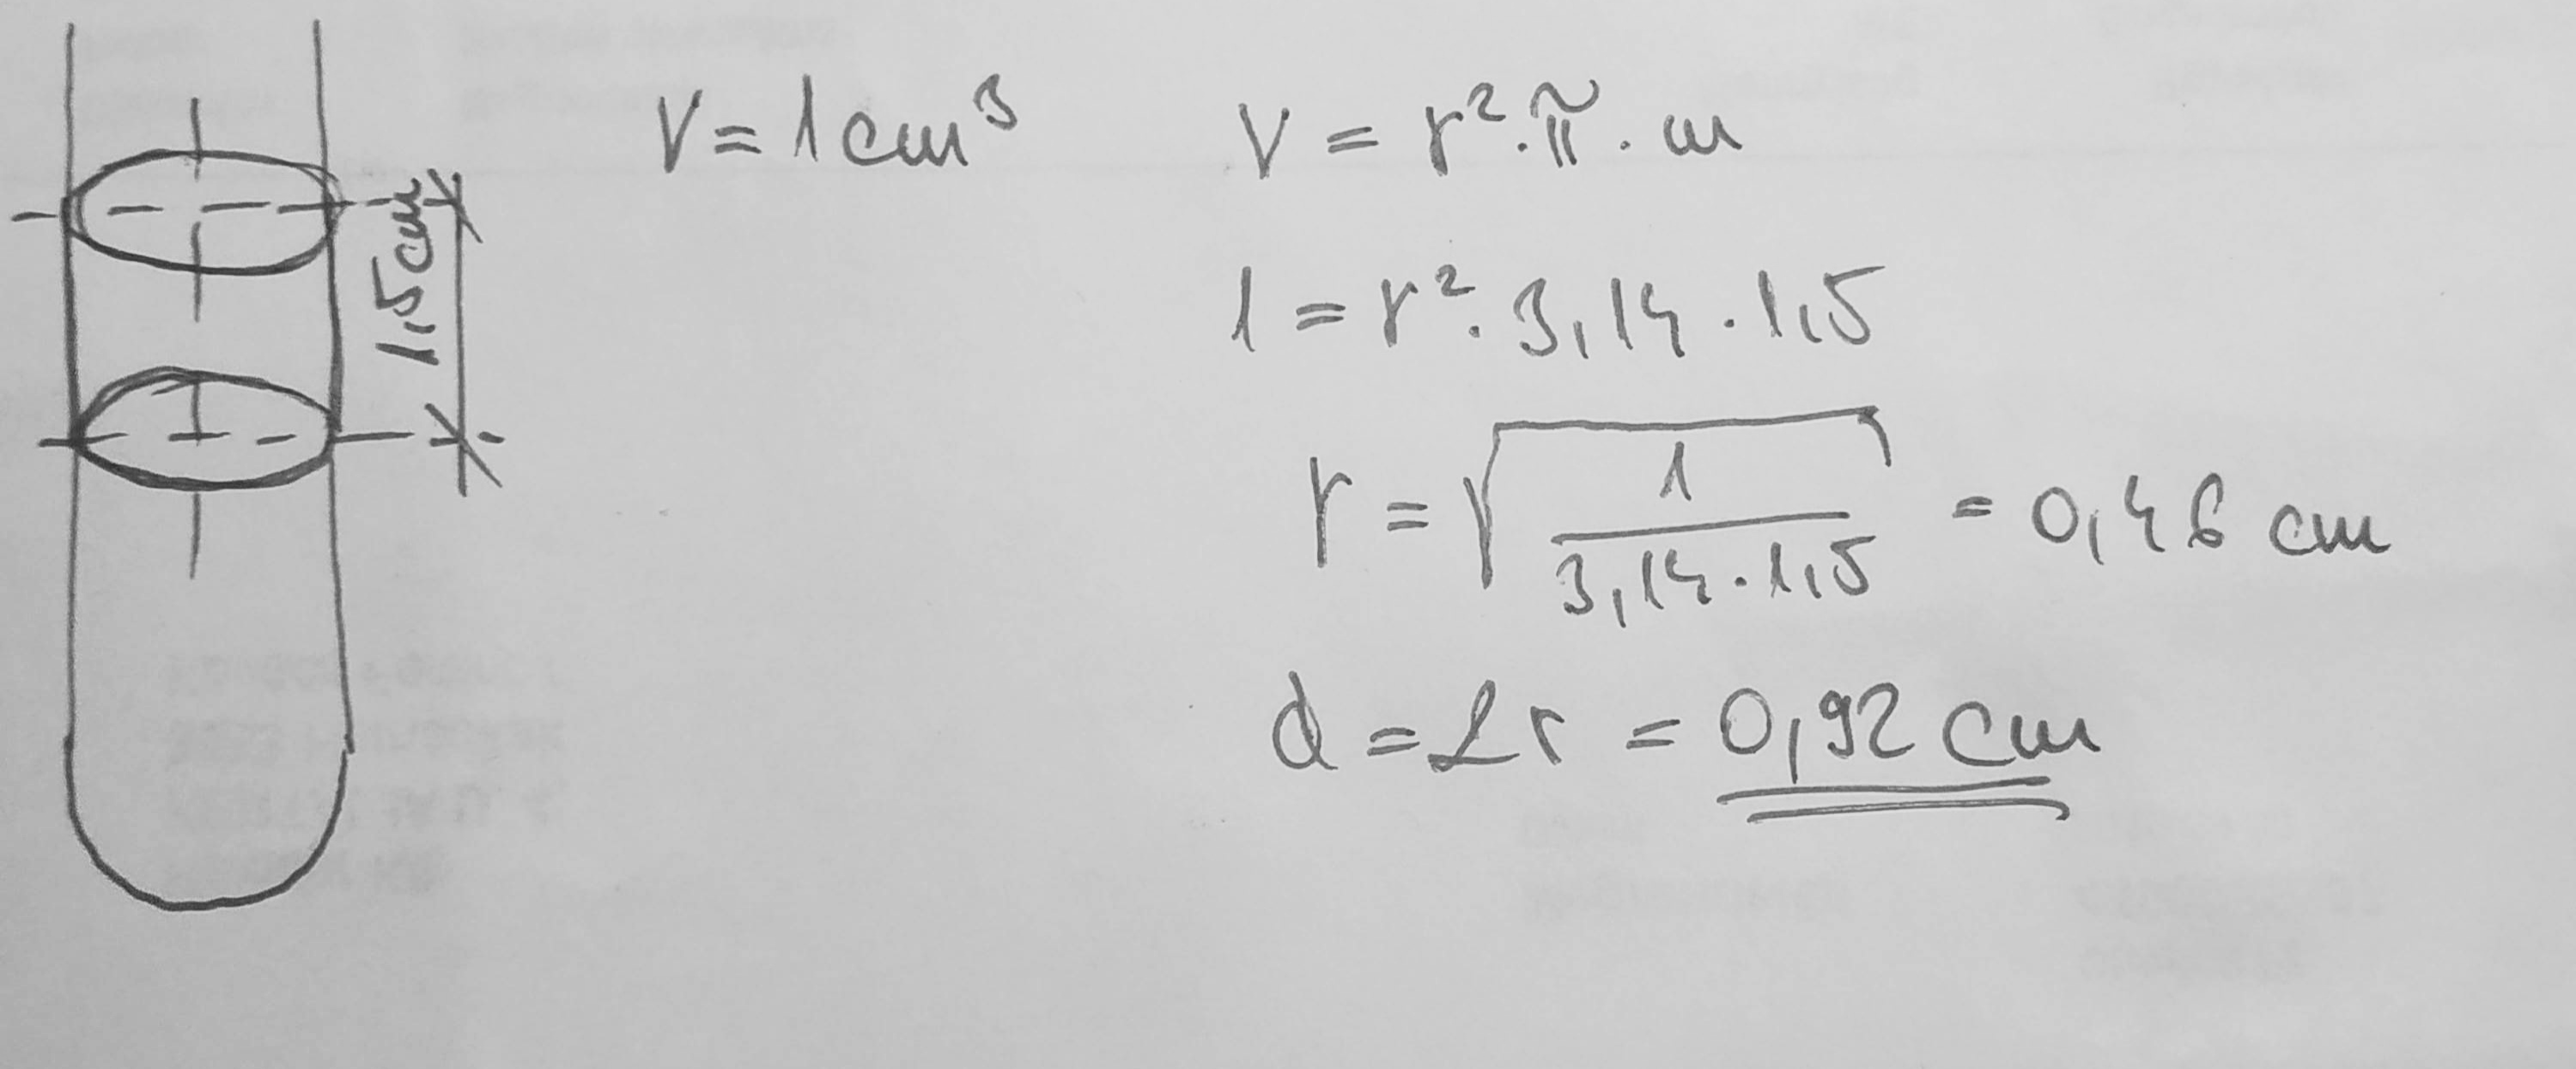 V = 1 cm³
V = r² · π · m
1,5 cm
1 = r² · 3,14 · 1,5
r = √(1 / (3,14 · 1,5)) = 0,46 cm
d = 2r = 0,92 cm